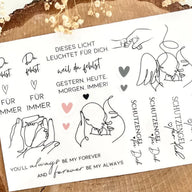 DIESES LICHT
LEUCHTET FÜR DICH.
Du
fehlst
FÜR
IMMER
Du
fehlst
FÜR
IMMER
weil du fehlst
GESTERN. HEUTE.
MORGEN. IMMER!
SCHUTZENGEL für Dich
SCHUTZENGEL für Dich
YOU'LL always BE MY FOREVER
AND forever BE MY ALWAYS